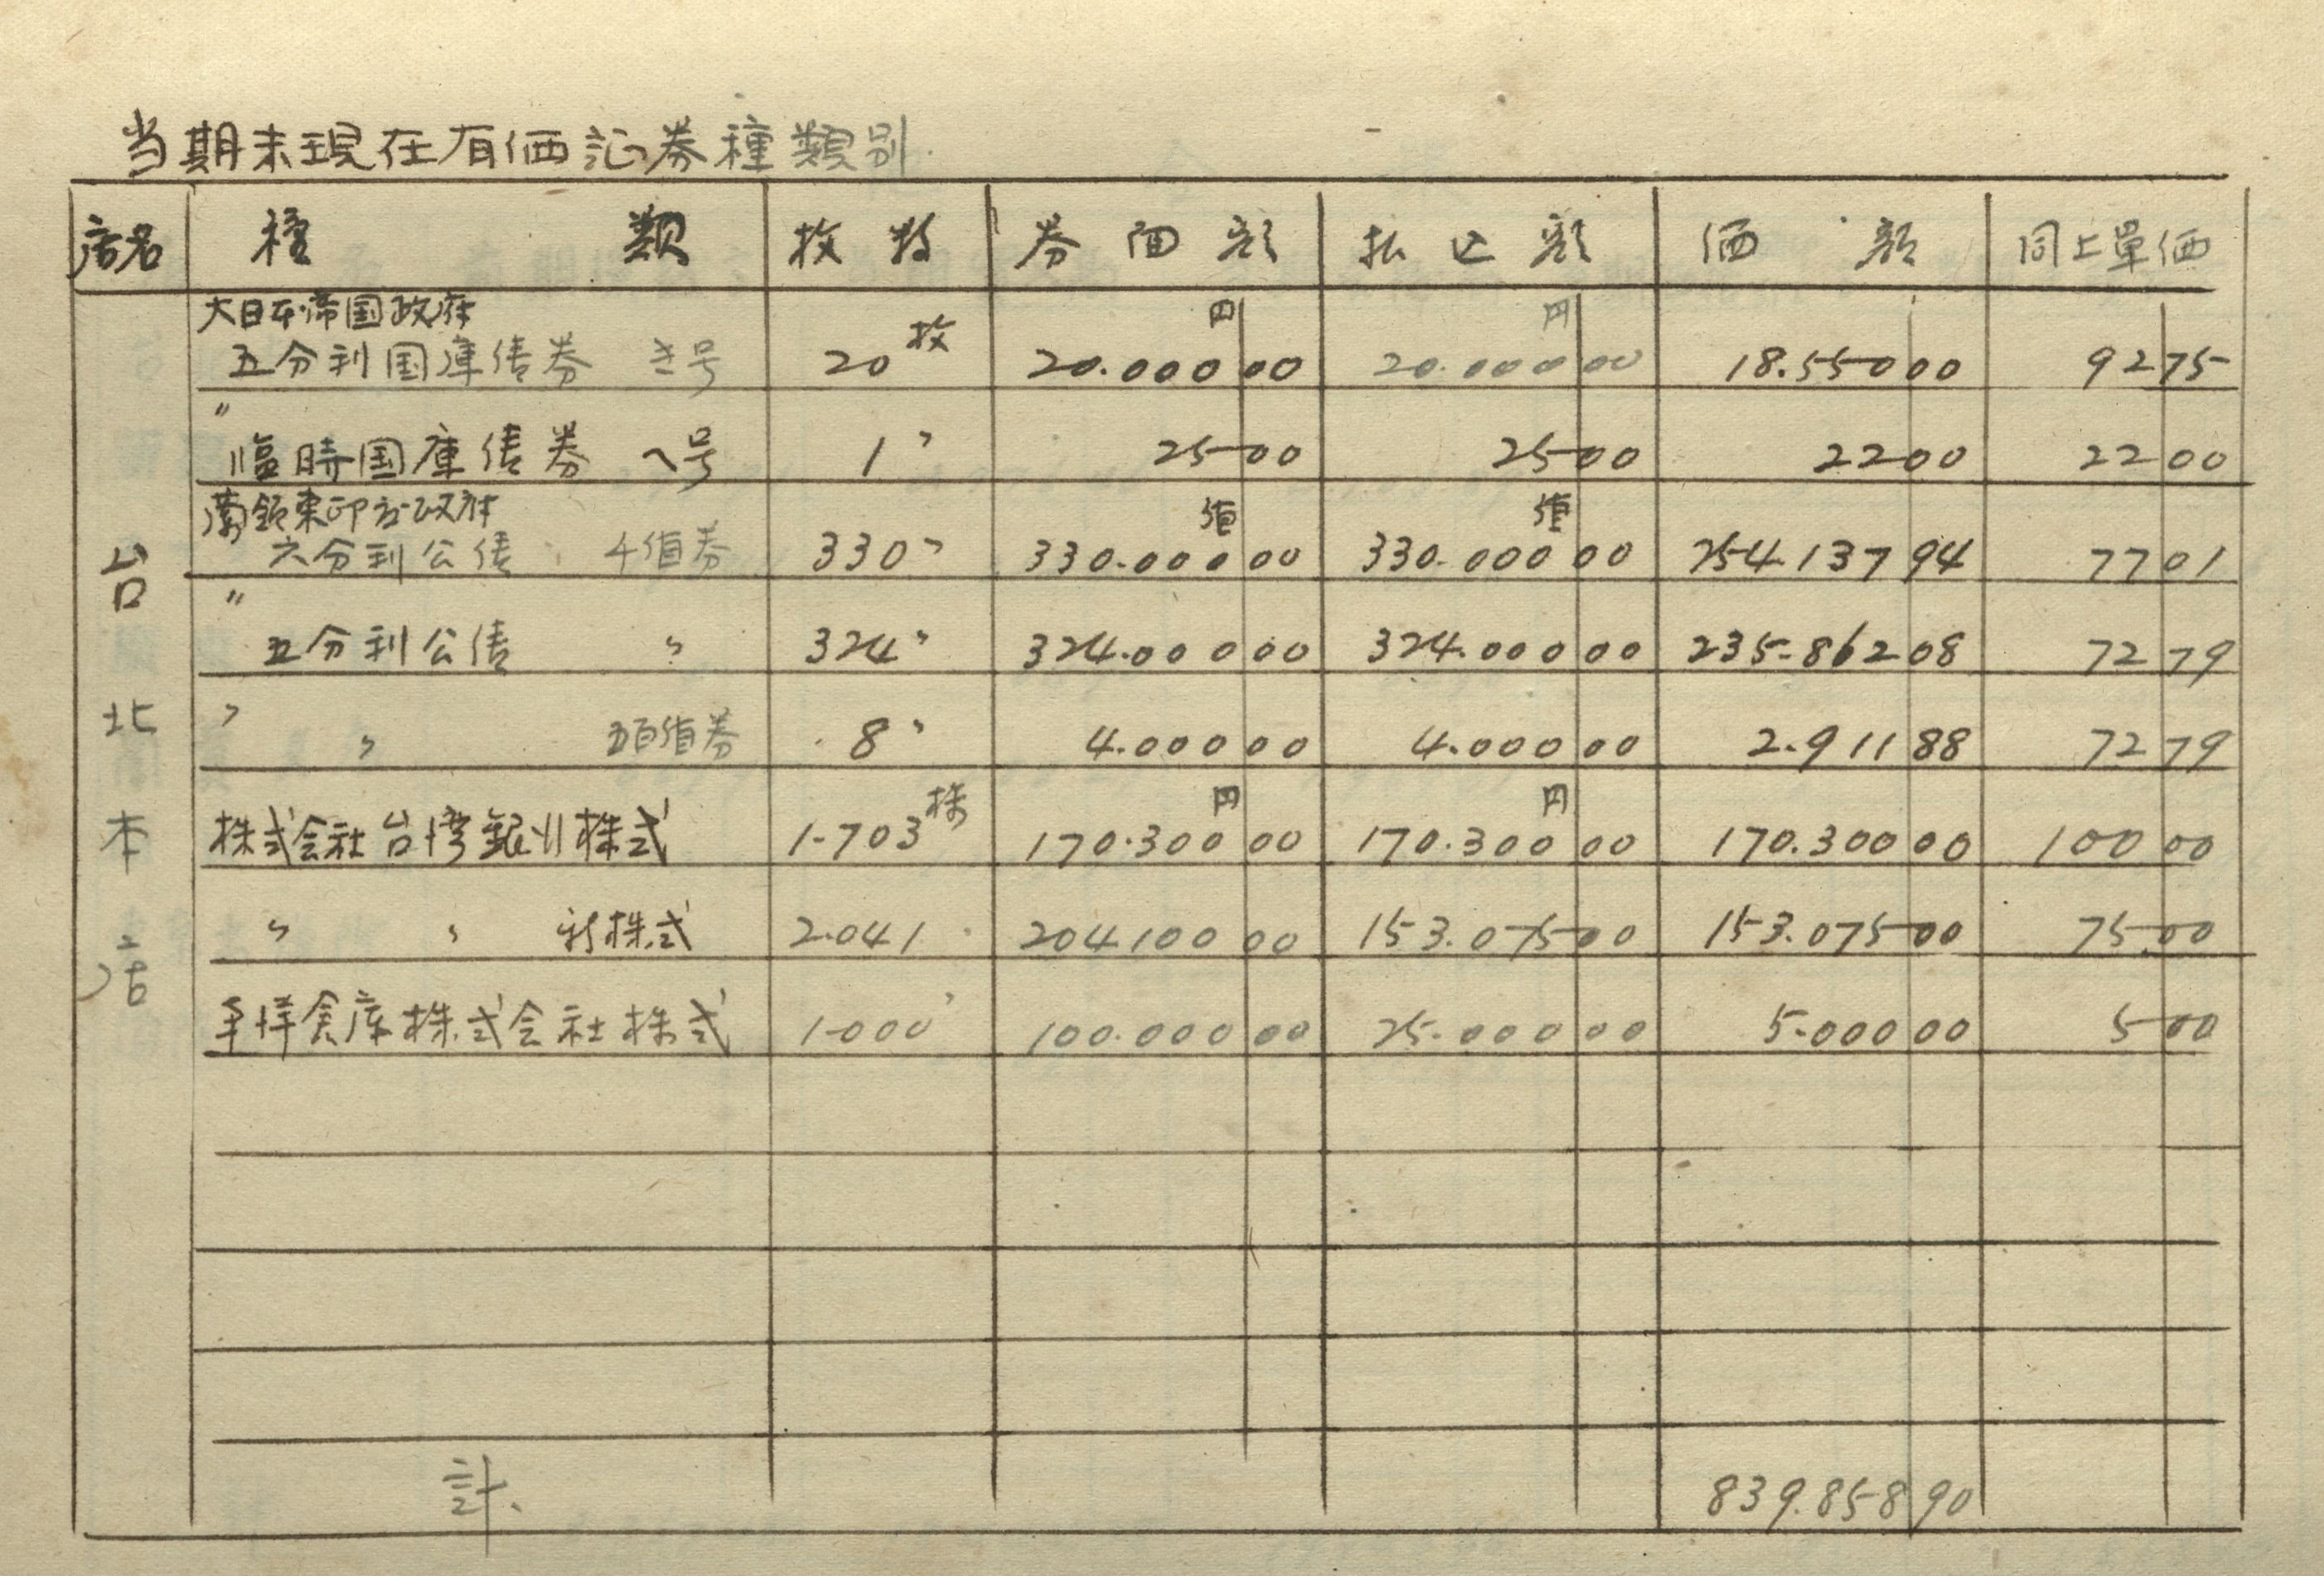 当期末現在有価証券種類別
店名 種類 枚数 券面額 払込額 価額 同上単価
台北本店
大日本帝国政府
五分利国庫債券 き号 20枚 20.000円00 20.000円00 18.55000 9275
〃
臨時国庫債券 へ号 1〃 2500 2500 2200 2200
蘭領東印度政府
六分利公債 千値券 330〃 330.000値00 330.000値00 254.13794 7701
〃
五分利公債 〃 324〃 324.00000 324.00000 235.86208 7279
〃 〃 五百値券 8〃 4.00000 4.00000 2.91188 7279
株式会社台湾銀行株式 1.703株 170.300円00 170.300円00 170.30000 10000
〃 〃 新株式 2.041 20410000 153.07500 153.07500 7500
倉庫株式会社株式 1.000〃 100.00000 25.00000 5.00000 500
計 839.85890